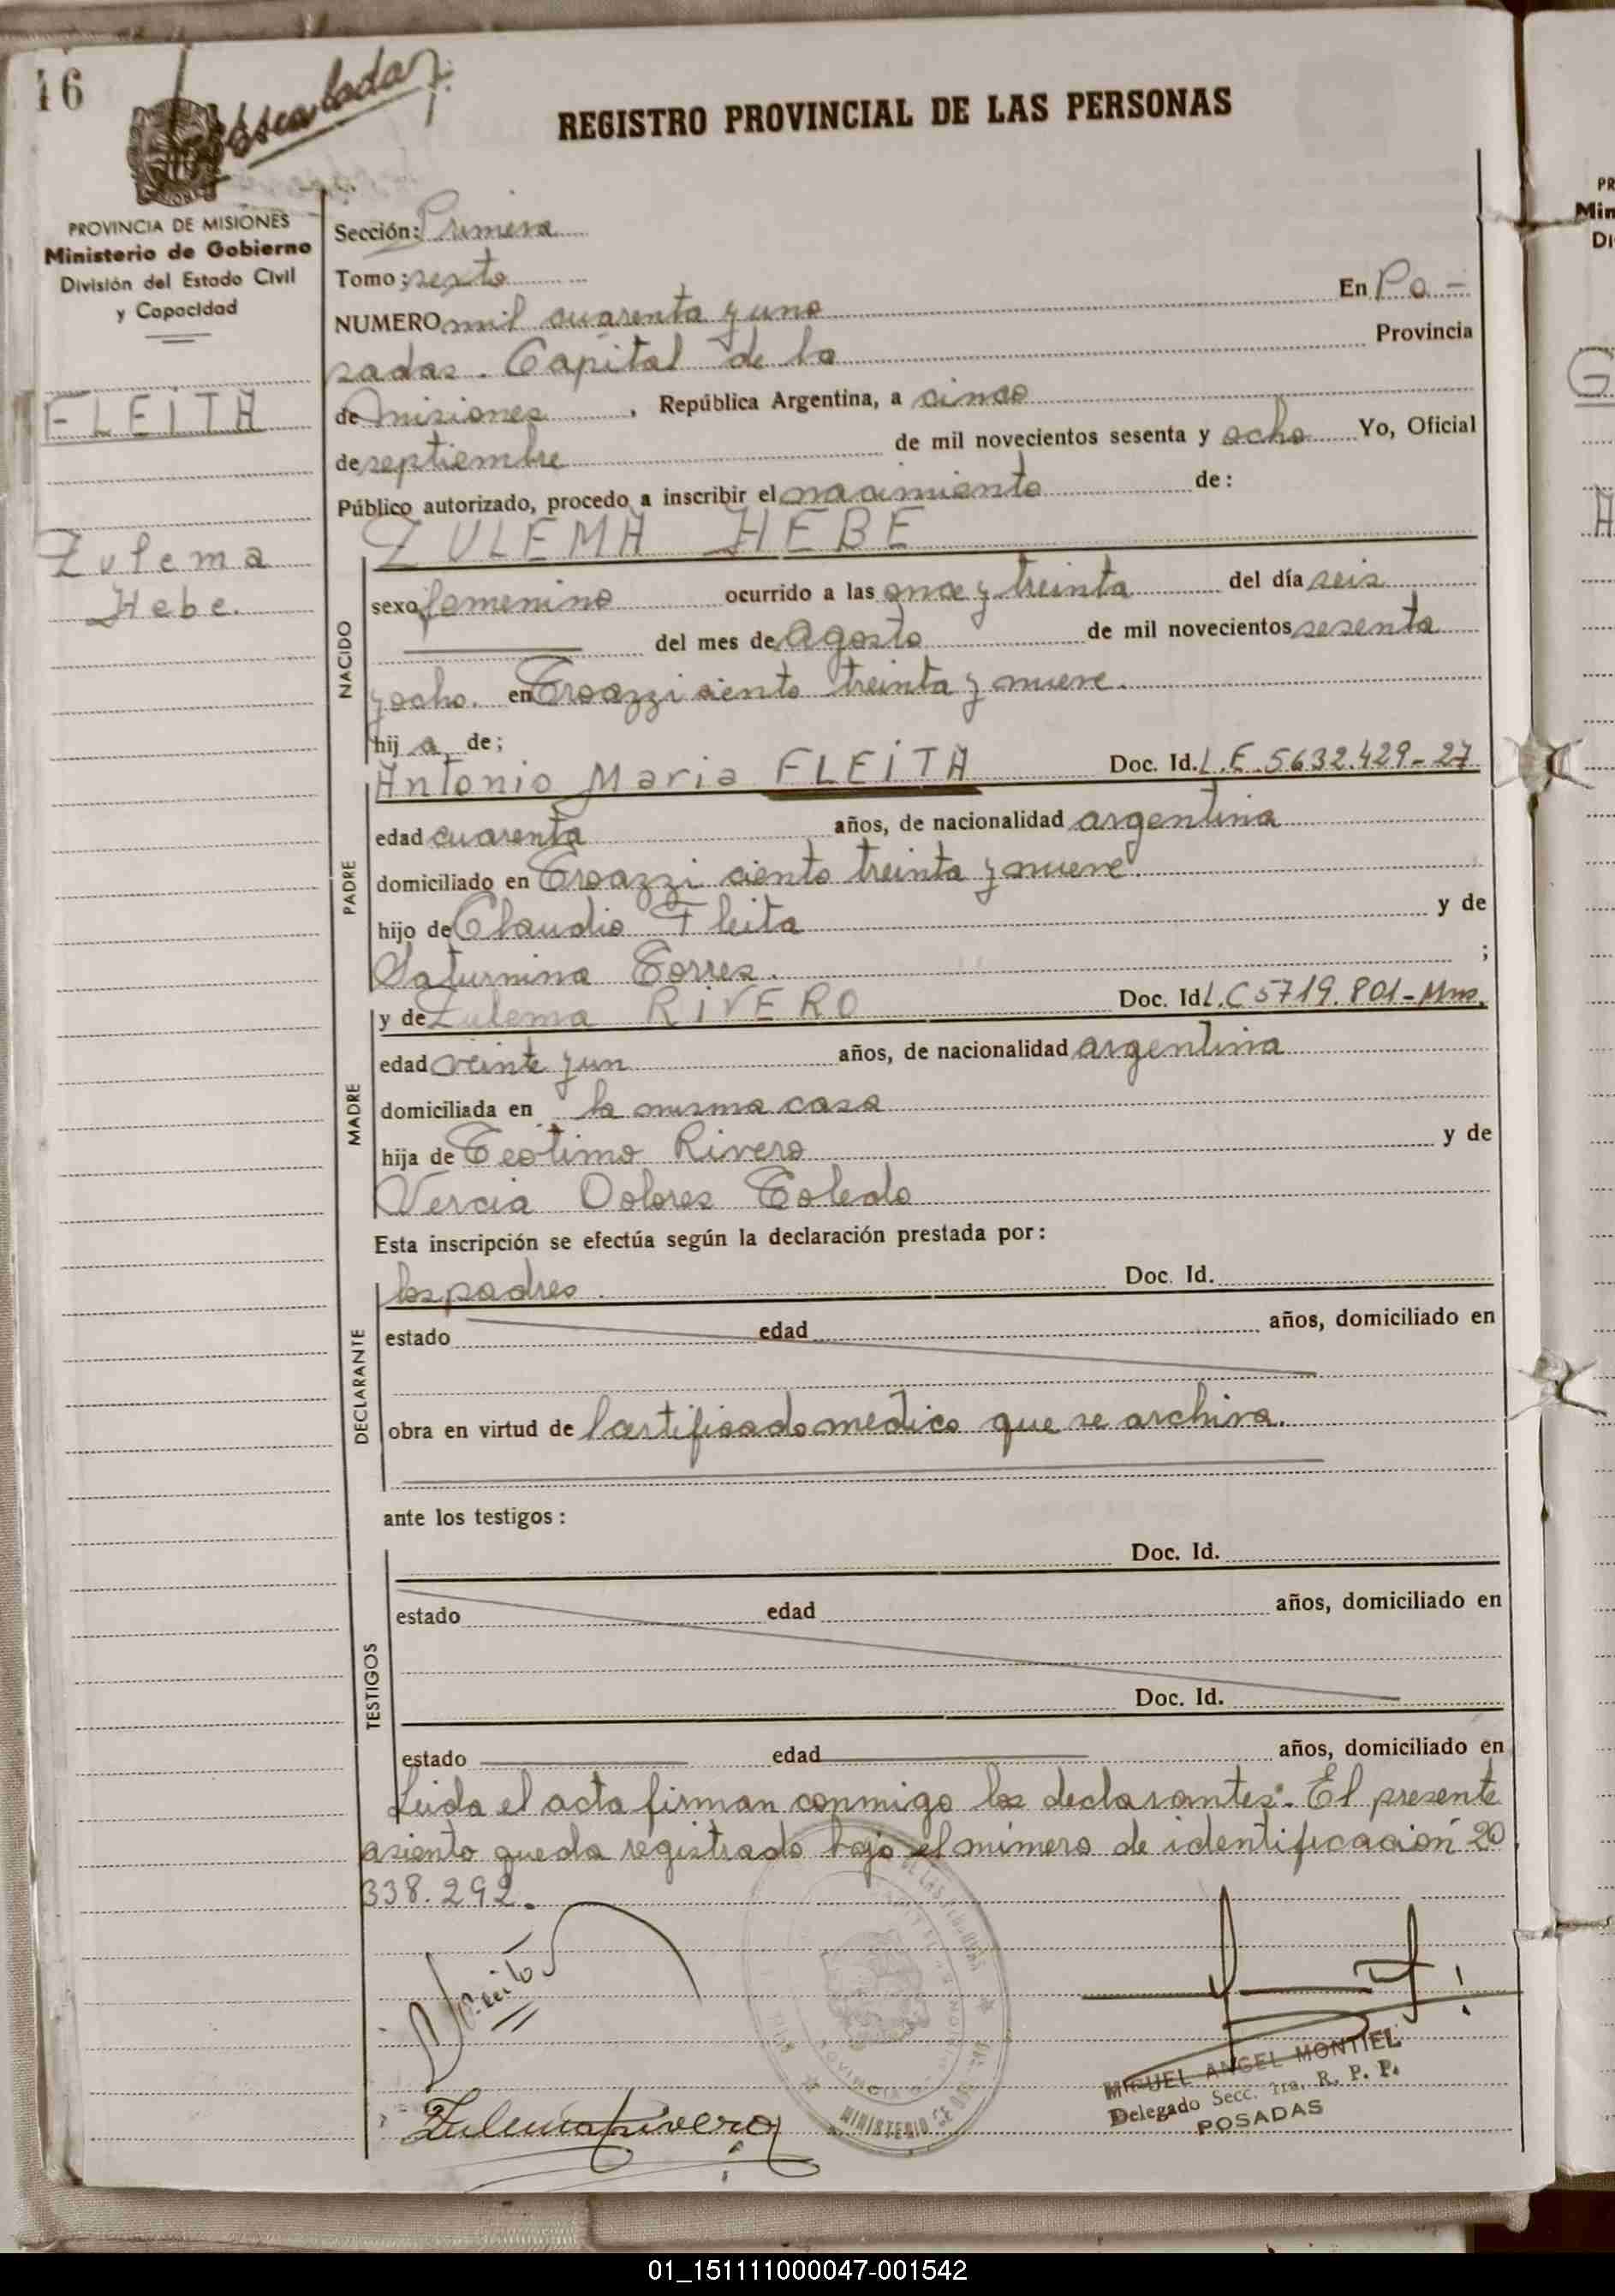 16
Escaladar
REGISTRO PROVINCIAL DE LAS PERSONAS
PROVINCIA DE MISIONES
Ministerio de Gobierno
División del Estado Civil
y Capacidad
FLEITA
Zulema
Hebe.
Sección: Primera
Tomo: sexto
NUMERO mil cuarenta y uno En Po-
sadas. Capital de la Provincia
de Misiones, República Argentina, a cinco
de septiembre de mil novecientos sesenta y ocho Yo, Oficial
Público autorizado, procedo a inscribir el nacimiento de:
ZULEMA HEBE
NACIDO
sexo femenino ocurrido a las once y treinta del día seis
del mes de Agosto de mil novecientos sesenta
y ocho. en Troazzi ciento treinta y nueve.
hij a de;
Antonio Maria FLEITA Doc. Id. L.E. 5632.429-27
PADRE
edad cuarenta años, de nacionalidad argentina
domiciliado en Troazzi ciento treinta y nueve.
hijo de Claudio Fleita y de
Saturnina Torres. ;
y de Zulema RIVERO Doc. Id L.C 5719.801-Mns.
MADRE
edad veinte y un años, de nacionalidad argentina
domiciliada en la misma casa
hija de Teotimo Rivero y de
Vercia Dolores Toledo
Esta inscripción se efectúa según la declaración prestada por:
los padres. Doc. Id.
DECLARANTE
estado edad años, domiciliado en
obra en virtud de certificado medico que se archiva.
ante los testigos:
Doc. Id.
TESTIGOS
estado edad años, domiciliado en
Doc. Id.
estado edad años, domiciliado en
Leida el acta firman conmigo los declarantes. El presente
asiento queda registrado bajo el número de identificación 20
338.292.
Zulema Rivero
MINISTERIO DE
MIGUEL ANGEL MONTIEL
Delegado Secc. 1ra. R. P. P.
POSADAS
PR
Min
Di
G
01_151111000047-001542